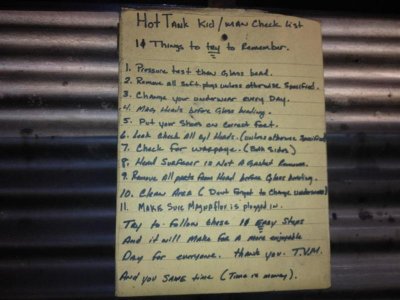 Hot Tank Kid/man Check list
10 Things to try to Remember.
1. Pressure test then Glass bead.
2. Remove all soft plugs unless otherwise specified.
3. Change your underwear every Day.
4. Mag Heads before Glass beading.
5. Put your shoes on correct feet.
6. Leak Check All cyl Heads. (unless otherwise specified
7. Check for warpage. (Both sides)
8. Head Surfacer is Not A Gasket Remover.
9. Remove All parts from Head before Glass beading.
10. Clean Area (Dont forget to Change underwear)
11. Make Sure Magnaflux is plugged in.
Try to follow these 10 Easy Steps
And it will Make for A more enjoyable
Day for everyone. thank you. T.V.M.
And you SAVE time (Time is money).